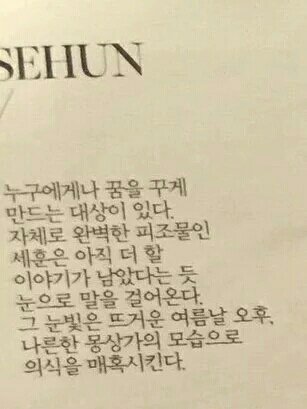 SEHUN
누구에게나 꿈을 꾸게
만드는 대상이 있다.
자체로 완벽한 피조물인
세훈은 아직 더 할
이야기가 남았다는 듯
눈으로 말을 걸어온다.
그 눈빛은 뜨거운 여름날 오후,
나른한 몽상가의 모습으로
의식을 매혹시킨다.